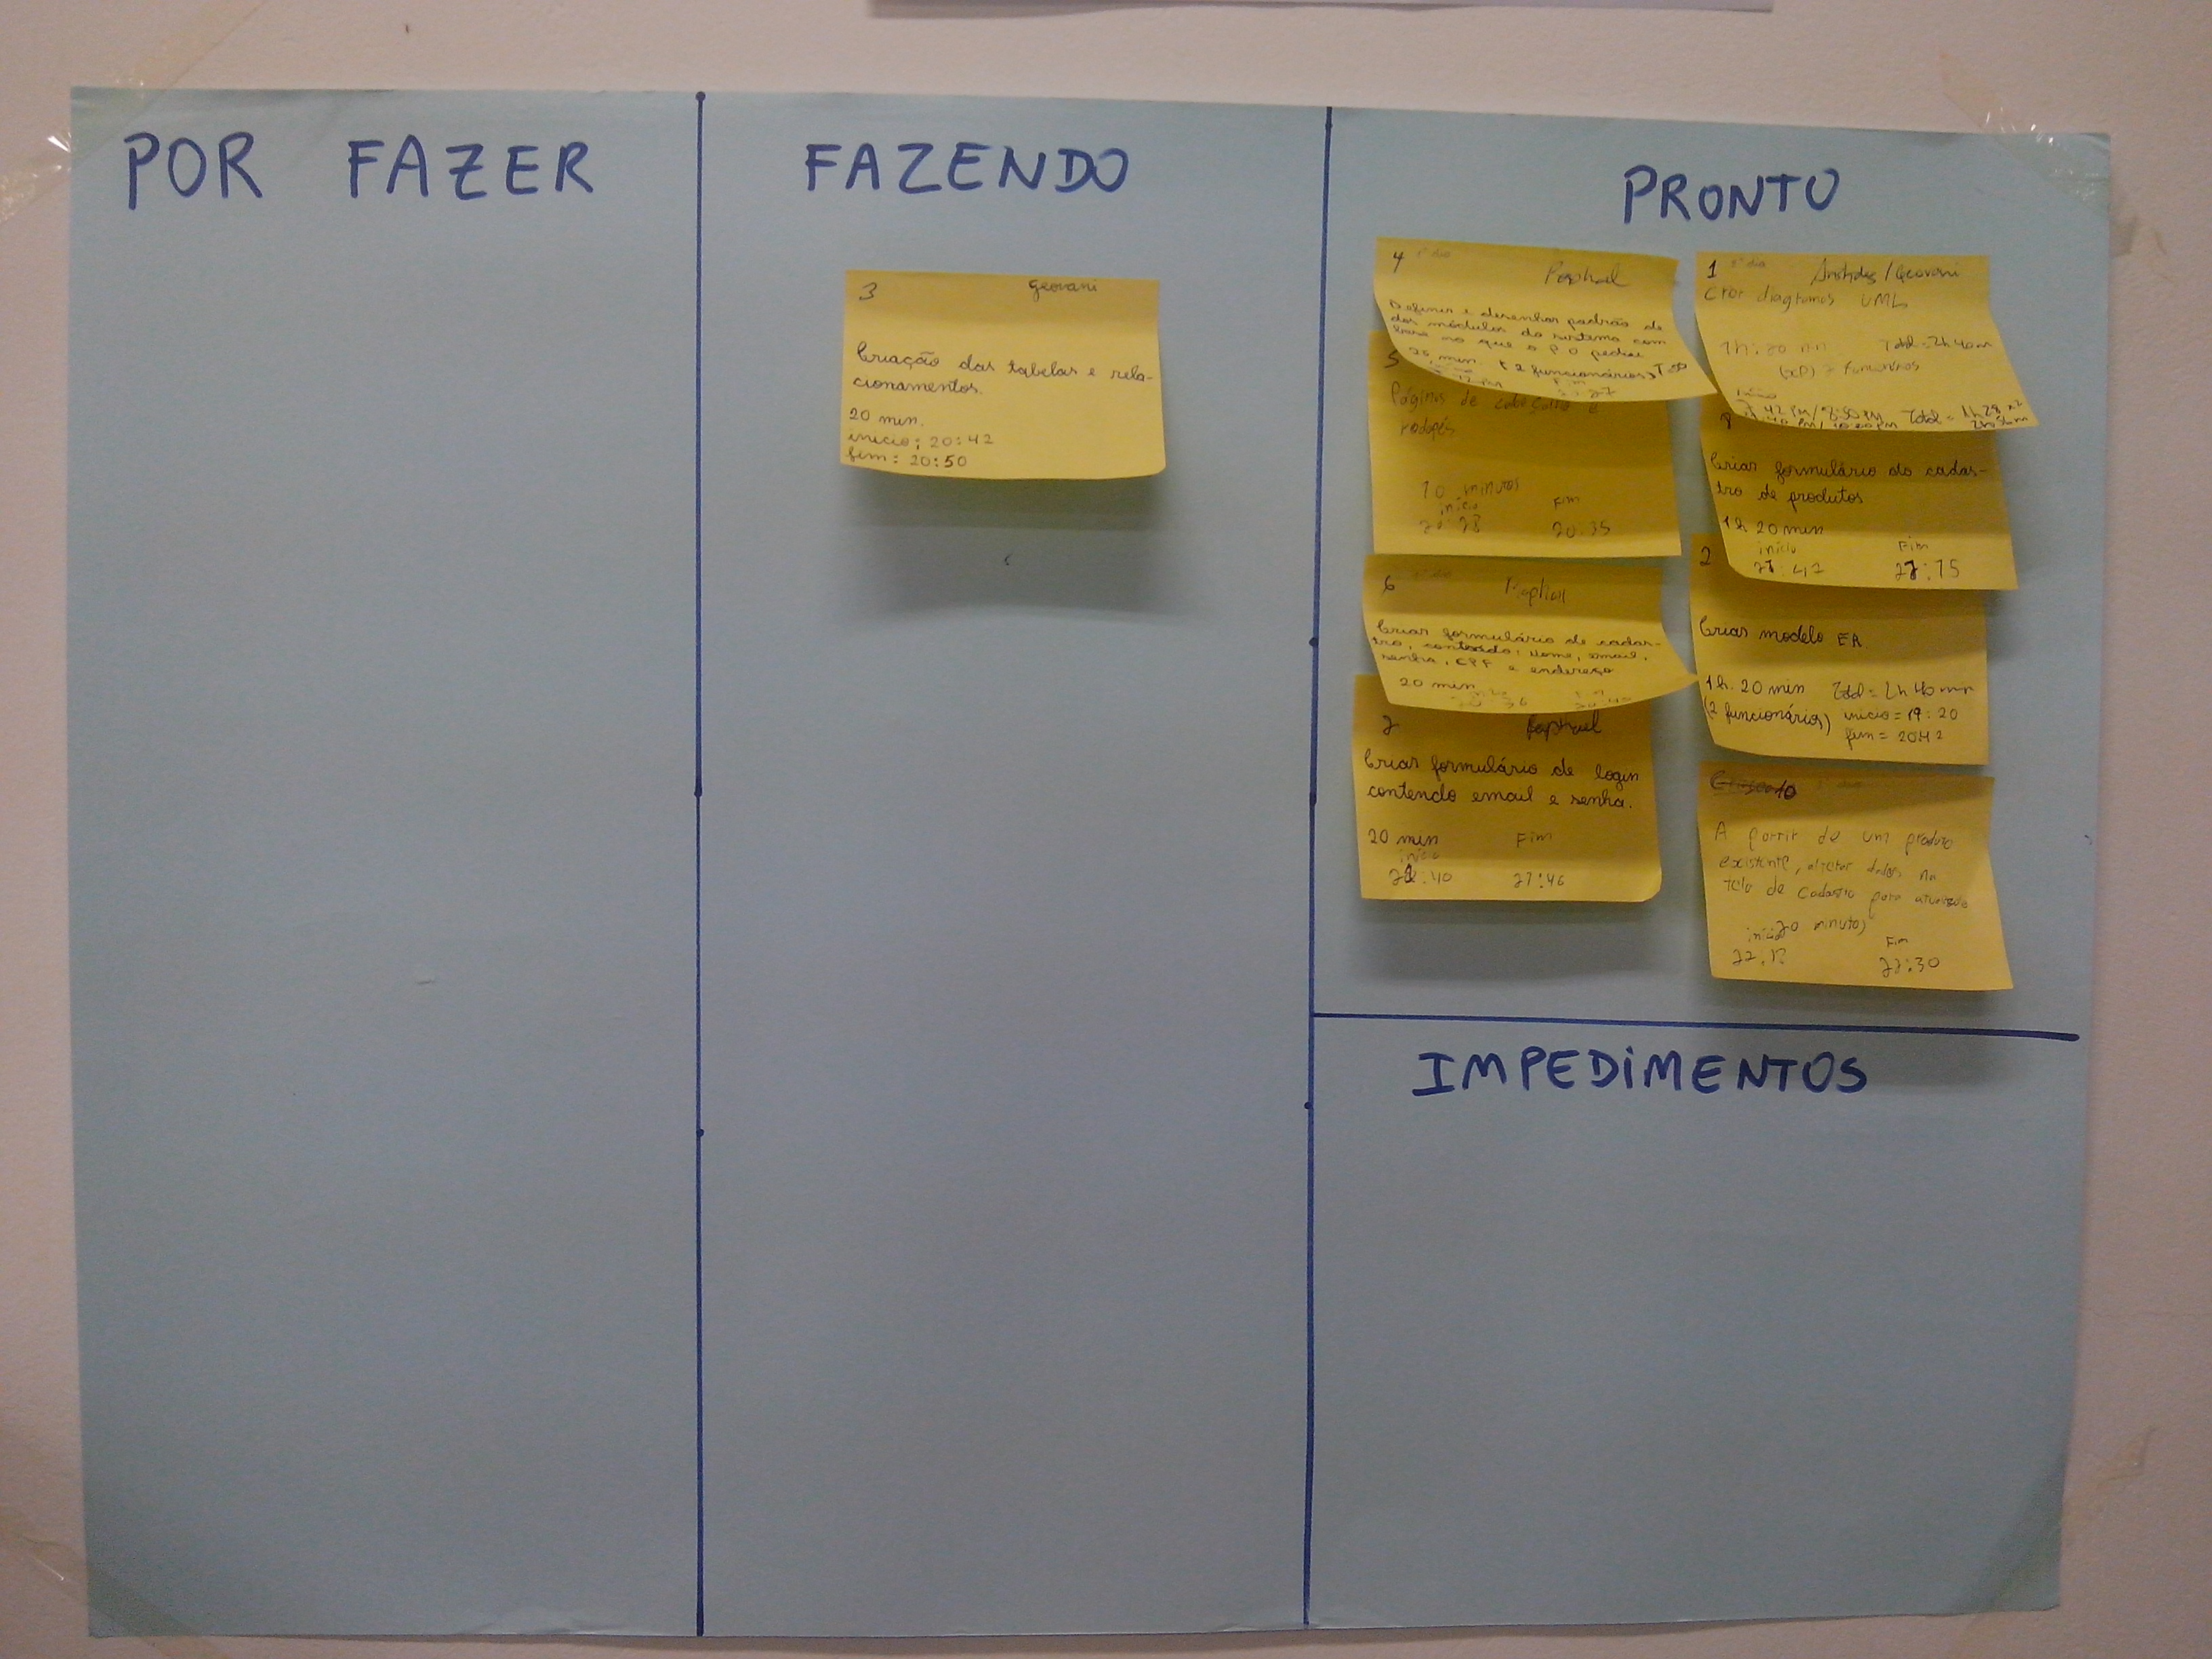 POR FAZER
FAZENDO
3 Geovani
Criação das tabelas e rela-
cionamentos.
20 min.
inicio: 20:42
fim: 20:50
PRONTO
4
Definir e desenhar padrão de
dos módulos do sistema com
base no que o PO pediu
25 min. (2 funcionários)
5
Páginas de cabeçalho e
rodapés
10 minutos
início Fim
20:35
6
Criar formulário de cadas-
tro, contendo: Nome, email,
senha, CPF e endereço
20 min
7 Raphael
Criar formulário de login
contendo email e senha.
20 min Fim
início
:40 21:46
1 /Geovani
Criar diagramas UML
Total = 2h 40m
8
Criar formulário do cadas-
tro de produtos
1h 20 min
início Fim
21:47 :15
2
Criar modelo ER
1h. 20 min Total = 2h 40 min
(2 funcionários) inicio = 19:20
fim = 20:42
A partir de um produto
existente, alterar dados na
tela de cadastro para
20 minutos
início Fim
22:30
IMPEDIMENTOS